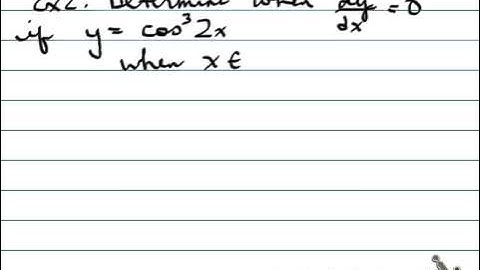 Ex2: Determine when dy/dx = 0
if y = cos³2x
when x ∈